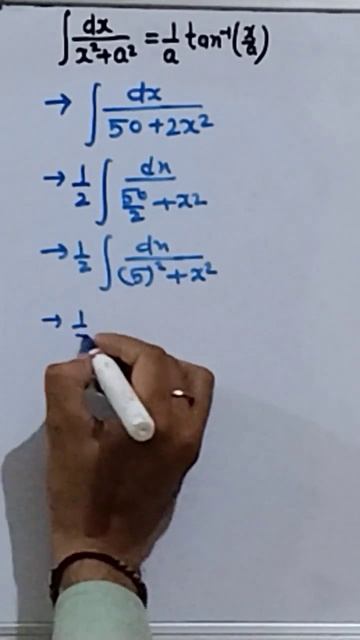 ∫ dx/(x²+a²) = 1/a tan⁻¹(x/a)
→ ∫ dx/(50+2x²)
→ 1/2 ∫ dx/(50/2 + x²)
→ 1/2 ∫ dx/((5)² + x²)
→ 1/